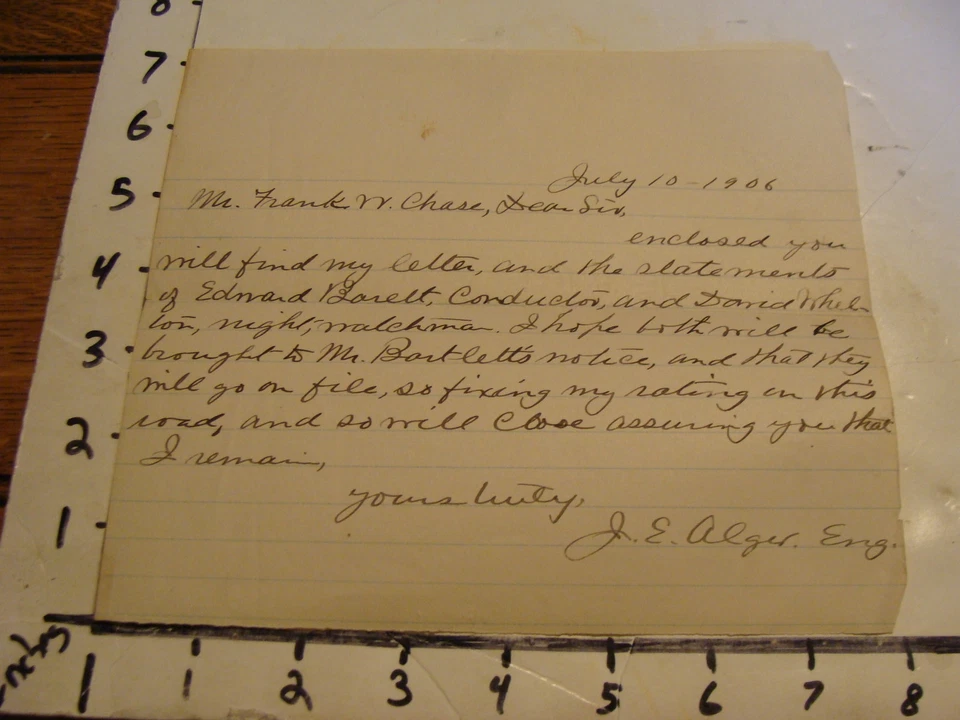 8
7
6
5
4
3
2
1
July 10-1906
Mr. Frank W. Chase, Dear Sir,
enclosed you
will find my letter, and the statements
of Edward Barett, Conductor, and David Whel-
ton, night, watchman. I hope both will be
brought to Mr. Bartlett's notice, and that they
will go on file, so fixing my rating on this
road, and so will close assuring you that
I remain,
yours truly,
J. E. Alger. Eng.
1 2 3 4 5 6 7 8